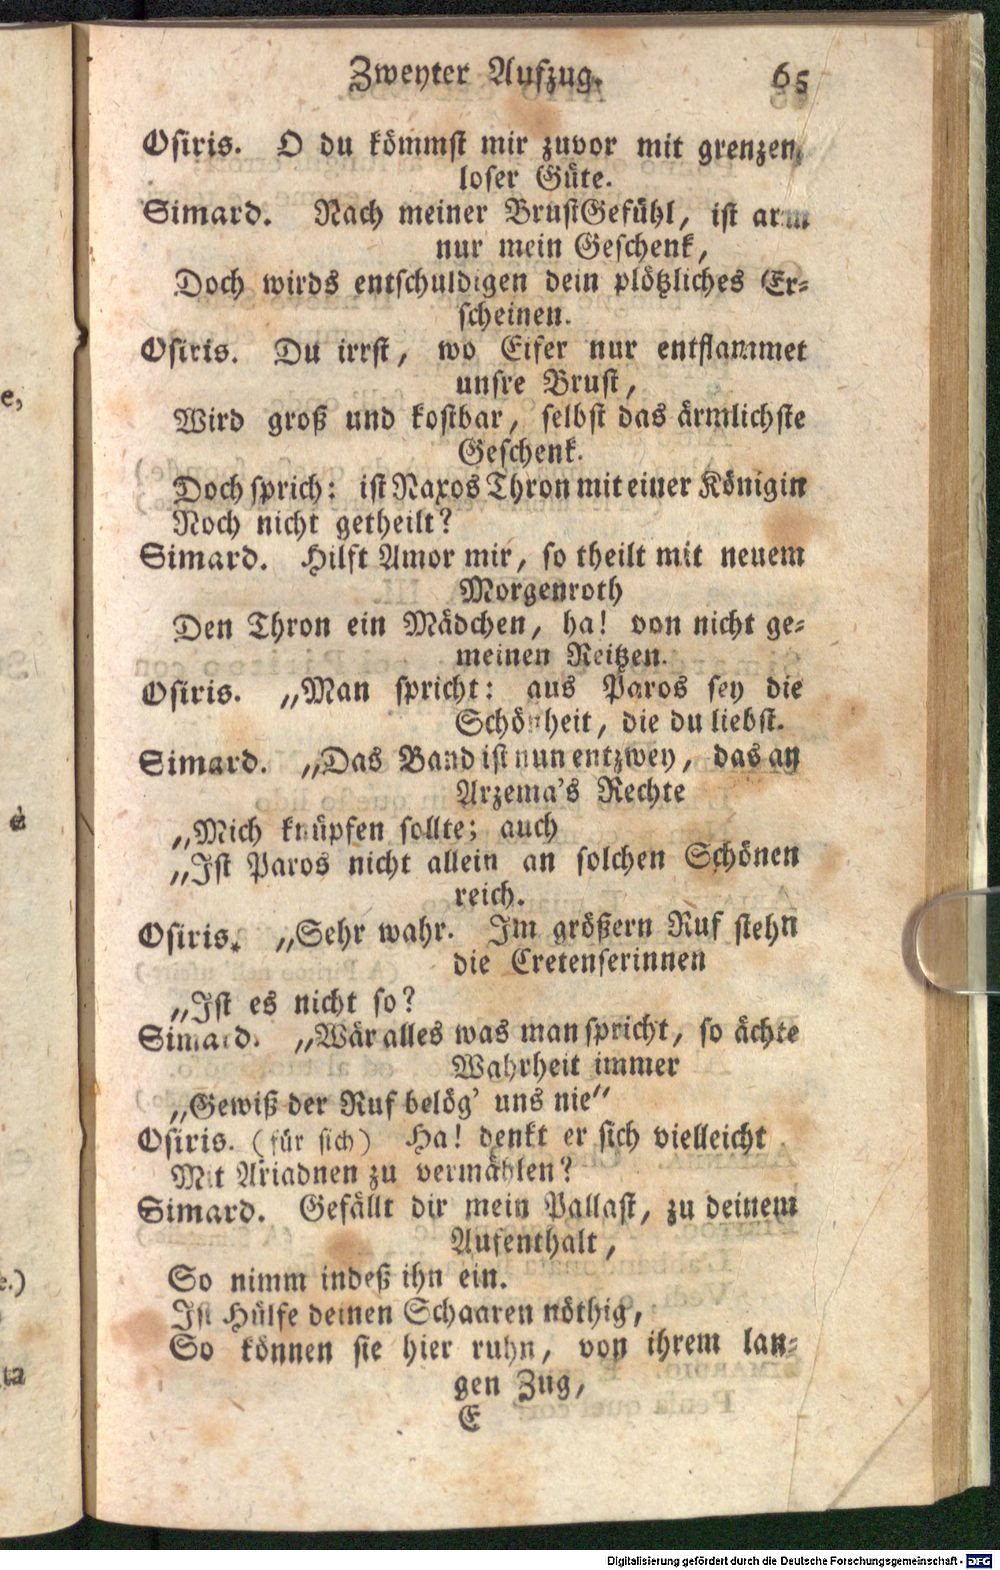 Zweyter Aufzug. 65
Osiris. O du kömmst mir zuvor mit grenzen-
loser Güte.
Simard. Nach meiner BrustGefühl, ist arm
nur mein Geschenk,
Doch wirds entschuldigen dein plötzliches Er-
scheinen.
Osiris. Du irrst, wo Eifer nur entflammet
unsre Brust,
Wird groß und kostbar, selbst das ärmlichste
Geschenk.
Doch sprich: ist Naxos Thron mit einer Königin
Noch nicht getheilt?
Simard. Hilft Amor mir, so theilt mit neuem
Morgenroth
Den Thron ein Mädchen, ha! von nicht ge-
meinen Reitzen.
Osiris. „Man spricht: aus Paros sey die
Schönheit, die du liebst.
Simard. „Das Band ist nun entzwey, das an
Arzema's Rechte
„Mich knüpfen sollte; auch
„Ist Paros nicht allein an solchen Schönen
reich.
Osiris. „Sehr wahr. Im größern Ruf stehn
die Cretenserinnen
„Ist es nicht so?
Simard. „Wär alles was man spricht, so ächte
Wahrheit immer
„Gewiß der Ruf belög' uns nie“
Osiris. (für sich) Ha! denkt er sich vielleicht
Mit Ariadnen zu vermählen?
Simard. Gefällt dir mein Pallast, zu deinem
Aufenthalt,
So nimm indeß ihn ein.
Ist Hülfe deinen Schaaren nöthig,
So können sie hier ruhn, von ihrem lan-
gen Zug,
E
e,
è
e.)
ta
Digitalisierung gefördert durch die Deutsche Forschungsgemeinschaft - DFG